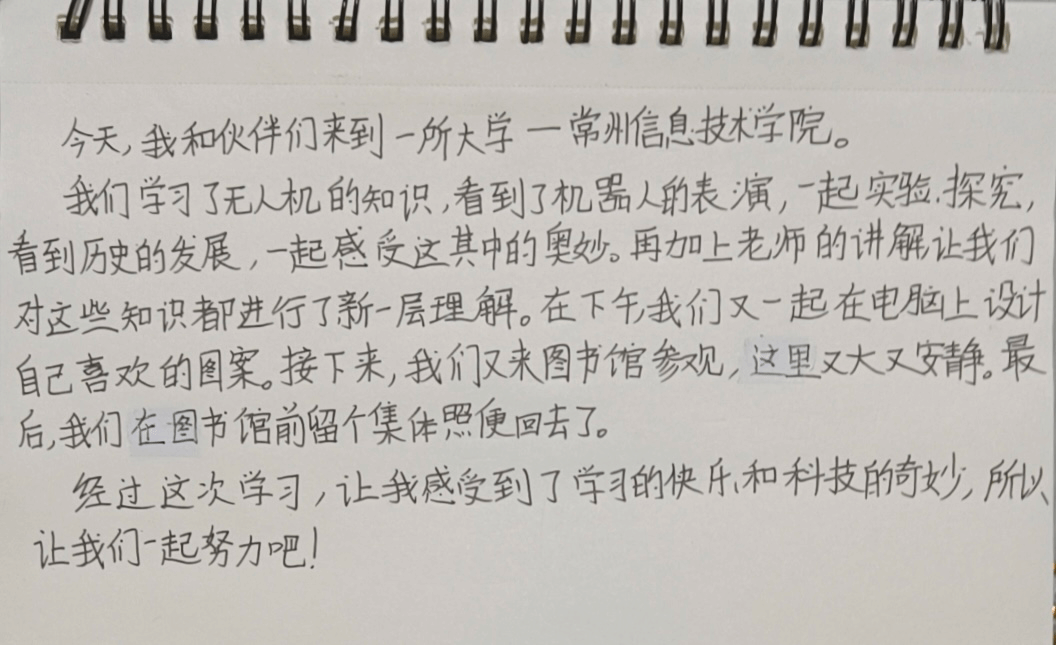 今天,我和伙伴们来到一所大学一常州信息技术学院。
我们学习了无人机的知识,看到了机器人的表演,一起实验.探究,
看到历史的发展,一起感受这其中的奥妙。再加上老师的讲解让我们
对这些知识都进行了新一层理解。在下午,我们又一起在电脑上设计
自己喜欢的图案。接下来,我们又来图书馆参观,这里又大又安静。最
后,我们在图书馆前留个集体照便回去了。
经过这次学习,让我感受到了学习的快乐、和科技的奇妙,所以
让我们一起努力吧!